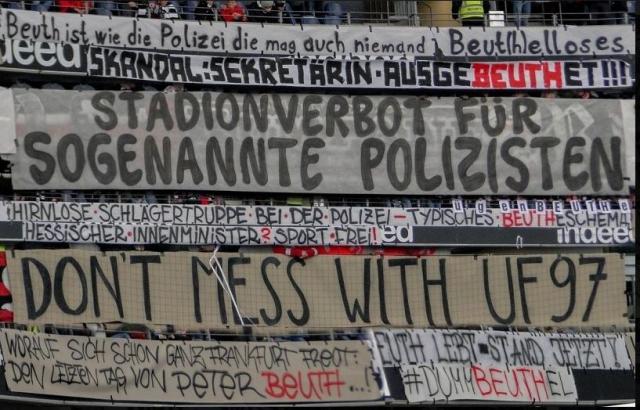 Beuth ist wie die Polizei die mag auch niemand
Beut(h)elloses
deed
SKANDAL:SEKRETÄRIN·AUSGEBEUTHET!!!!
STADIONVERBOT FÜR
SOGENANNTE POLIZISTEN
HIRNLOSE·SCHLÄGERTRUPPE·BEI·DER·POLIZEI–TYPISCHES·BEUTHESCHEMA
HESSISCHER·INNENMINISTER? SPORT FREI!
ed
indeed
DON'T MESS WITH UF97
WORAUF SICH SCHON GANZ FRANKFURT FREUT:
DEN LETZEN TAG VON PETER BEUTH...!
LEBT-STAND JETZT!
#DUMMBEUTHEL